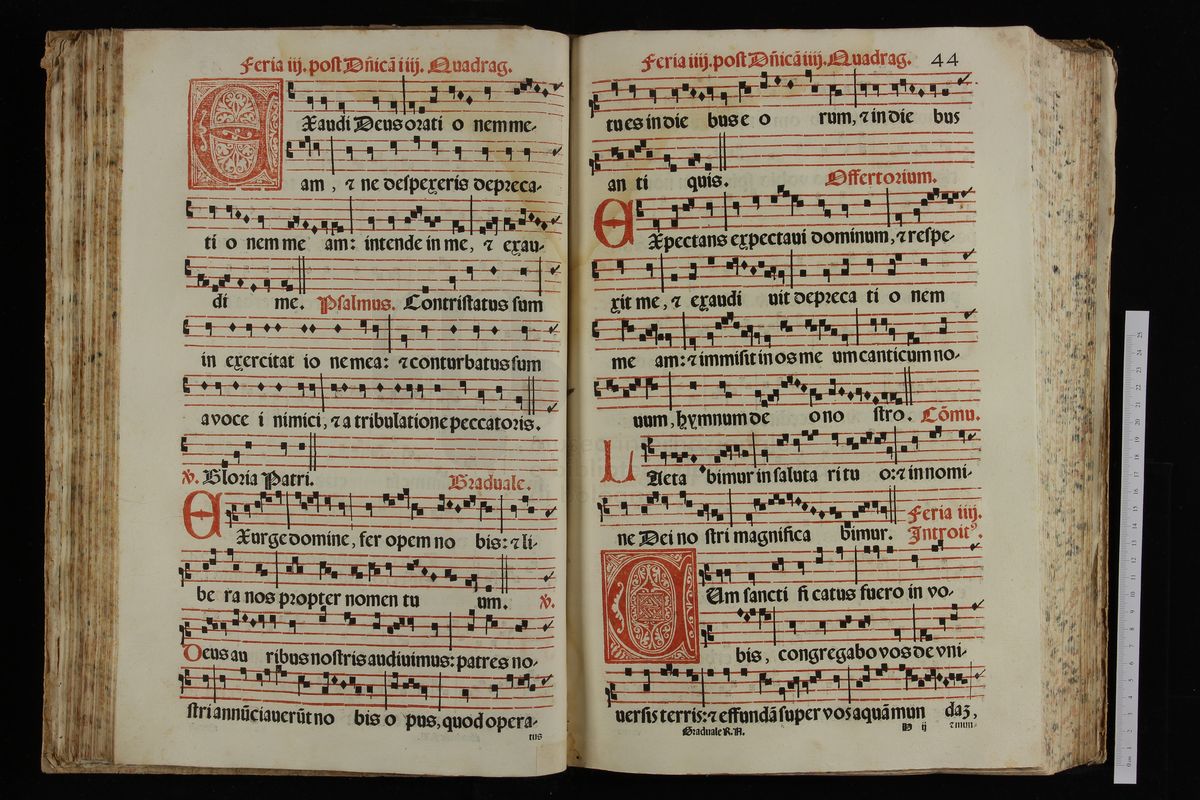 Feria iij. post Dñicã iiij. Quadrag.
EXaudi Deus orati o nem me-
am, ⁊ ne despexeris depreca-
ti o nem me am: intende in me, ⁊ exau-
di me. Psalmus. Contristatus sum
in exercitat io ne mea: ⁊ conturbatus sum
a voce i nimici, ⁊ a tribulatione peccatoris.
℣. Gloria Patri. Graduale.
EXurge domine, fer opem no bis: ⁊ li-
be ra nos propter nomen tu um. ℣.
Deus au ribus nostris audiuimus: patres no-
stri annũciauerũt no bis o pus, quod opera-
tus
Feria iiij. post Dñicã iiij. Quadrag. 44
tu es in die bus e o rum, ⁊ in die bus
an ti quis. Offertorium.
EXpectans expectaui dominum, ⁊ respe-
xit me, ⁊ exaudi uit depreca ti o nem
me am: ⁊ immisit in os me um canticum no-
uum, hymnum de o no stro. Cõmu.
LAeta bimur in saluta ri tu o: ⁊ in nomi-
ne Dei no stri magnifica bimur. Feria iiij.
Introitꝰ.
CUm sancti fi catus fuero in vo-
bis, congregabo vos de vni-
uersis terris: ⁊ effundã super vos aquã mun daʒ,
Graduale R. A. H ij ⁊ mun-
0 cm 1 2 3 4 5 6 7 8 9 10 11 12 13 14 15 16 17 18 19 20 21 22 23 24 25